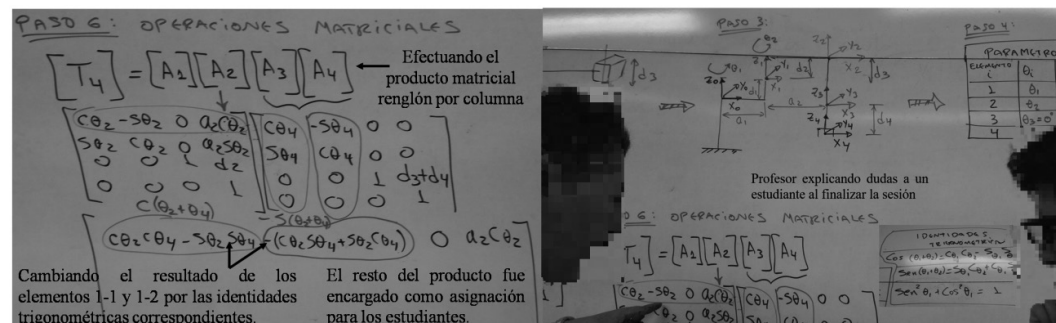 PASO 6: OPERACIONES MATRICIALES
[T4] = [A1][A2][A3][A4]
Efectuando el
producto matricial
renglón por columna
Cθ2 -Sθ2 0 a2Cθ2 Cθ4 -Sθ4 0 0
Sθ2 Cθ2 0 a2Sθ2 Sθ4 Cθ4 0 0
0 0 1 d2 0 0 1 d3+d4
0 0 0 1 0 0 0 1
C(θ2+θ4)
Cθ2Cθ4 - Sθ2Sθ4 -(Cθ2Sθ4+Sθ2Cθ4) 0 a2Cθ2
Cambiando el resultado de los
elementos 1-1 y 1-2 por las identidades
trigonométricas correspondientes.
El resto del producto fue
encargado como asignación
para los estudiantes.
PASO 3:
θ2
Z2 Y2
X2
d3
θ1
Z0 Y0
X0
Y1
X1
d1
d2
a1
a2
Z3 Y3
X3
Z4 Y4
X4
d3
d4
PASO 4:
PARAMETRO
ELEMENTO
i θi
1 θ1
2 θ2
3 θ3=0°
4
Profesor explicando dudas a un
estudiante al finalizar la sesión
O 6: OPERACIONES MATRICIALES
T4] = [A1][A2][A3][A4]
Cθ2 -Sθ2 0 a2Cθ2 Cθ4 -Sθ4 0 0
θ2 0 a2Sθ2
IDENTIDADES
Sen²θ1 + Cos²θ1 = 1